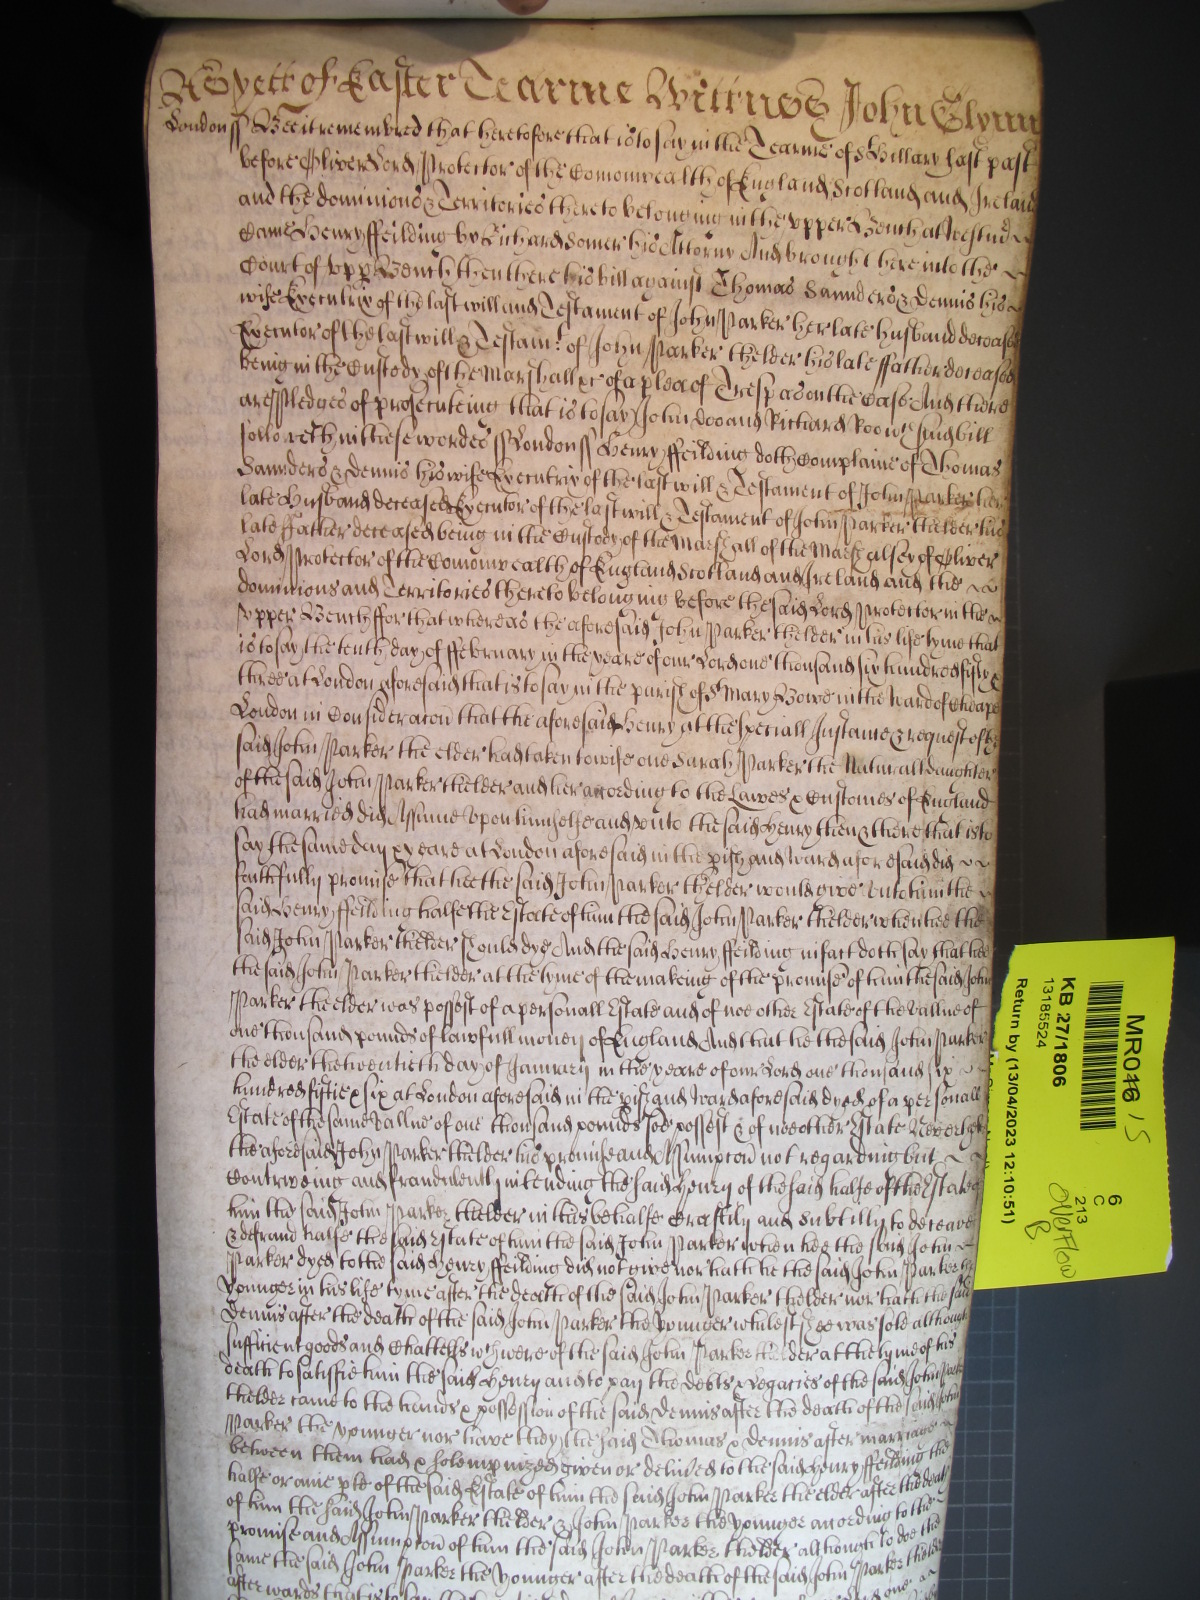 As yett of Easter Tearme Wittnes John Glynn
London ss Bee it remembred that heretofore that is to say in the Tearme of St Hillary last past
before Oliver Lord Protector of the Comonwealth of England Scotland and Ireland
and the dominions & Territories thereto belonging in the upper Bench at Westmr
Came Henry ffeilding by Richard Somer his Attorny And brought here into the
Court of upper Bench then there his bill against Thomas Saunders & Dennis his
wife Executrix of the last will and Testament of John Parker her late husband deceased
Executor of the last will & Testamt. of John Parker thelder his late ffather deceased
being in the Custody of the Marshall &c of a plea of Trespas on the Case And there
are Pledges of prosecuteing that is to say John Doo and Richard Roo wch said bill
followeth in these wordes ss London ss Henry ffeilding doth Complaine of Thomas
Saunders & Dennis his wife Executrix of the last will & Testament of John Parker her
late Husband deceased Executor of the last will & Testament of John Parker thelder his
late ffather deceased being in the Custody of the Marshall of the Marshalsey of Oliver
Lord Protector of the Comonwealth of England Scotland and Ireland and the
dominions and Territories thereto belonging before the said Lord Protector in the
upper Bench ffor that whereas the aforesaid John Parker thelder in his life tyme that
is to say the tenth day of ffebruary in the yeare of our Lord one thousand six hundred fifty &
three at London aforesaid that is to say in the parish of St Mary Bowe in the Ward of Cheape
London in Consideracon that the aforesaid Henry at the speciall Instance & request of the
said John Parker the elder had taken to wife one Sarah Parker the Naturall daughter
of the said John Parker thelder and her according to the Lawes & Customes of England
had married did Assume upon himselfe and unto the said Henry then & there that is to
say the same day & yeare at London aforesaid in the pish and ward aforesaid did
faithfully promise that hee the said John Parker thelder would give unto him the
said Henry ffeilding halfe the Estate of him the said John Parker thelder when hee the
said John Parker thelder should dye And the said Henry ffeilding in fact doth say that hee
the said John Parker thelder at the tyme of the makeing of the promise of him the said John
Parker the elder was possest of a personall Estate and of noe other Estate of the vallue of
one thousand pounds of lawfull money of England And that he the said John Parker
the elder the twentieth day of January in the yeare of our Lord one thousand six
hundred fiftie & six at London aforesaid in the pish and ward aforesaid dyed of a personall
Estate of the same vallue of one thousand pounds soe possest & of noe other Estate Neverthelesse
the aforesaid John Parker thelder his promise and Assumpcon not regarding but
Contriveing and fraudulently intending the said Henry of the said halfe of the Estate of
him the said John Parker thelder in this behalfe Craftily and Subtilly to deceave
& defraud halfe the said Estate of him the said John Parker when hee the said John
Parker dyed to the said Henry ffeilding did not give nor hath he the said John Parker the
younger in his life tyme after the death of the said John Parker thelder nor hath the said
Dennis after the death of the said John Parker the younger whilest shee was sole although
sufficient goods and Chattells wch were of the said John Parker thelder at the tyme of his
death to satisfie him the said Henry and to pay the debts & legacies of the said John Parker
thelder came to the hands & possession of the said Dennis after the death of the said John
Parker the younger nor have they the said Thomas & Dennis after marriage
between them had & solempnized given or delivered to the said Henry ffeilding the
halfe or anie pte of the said Estate of him the said John Parker the elder after the death
of him the said John Parker thelder & John Parker the younger according to the
promise and Assumpcon of him the said John Parker thelder although to doe the
same the said John Parker the younger after the death of the said John Parker thelder
after wards that is to say
MR016 / S
KB 27/1806
13185524
Return by (13/04/2023 12:10:51)
6
C
213
overflow
B